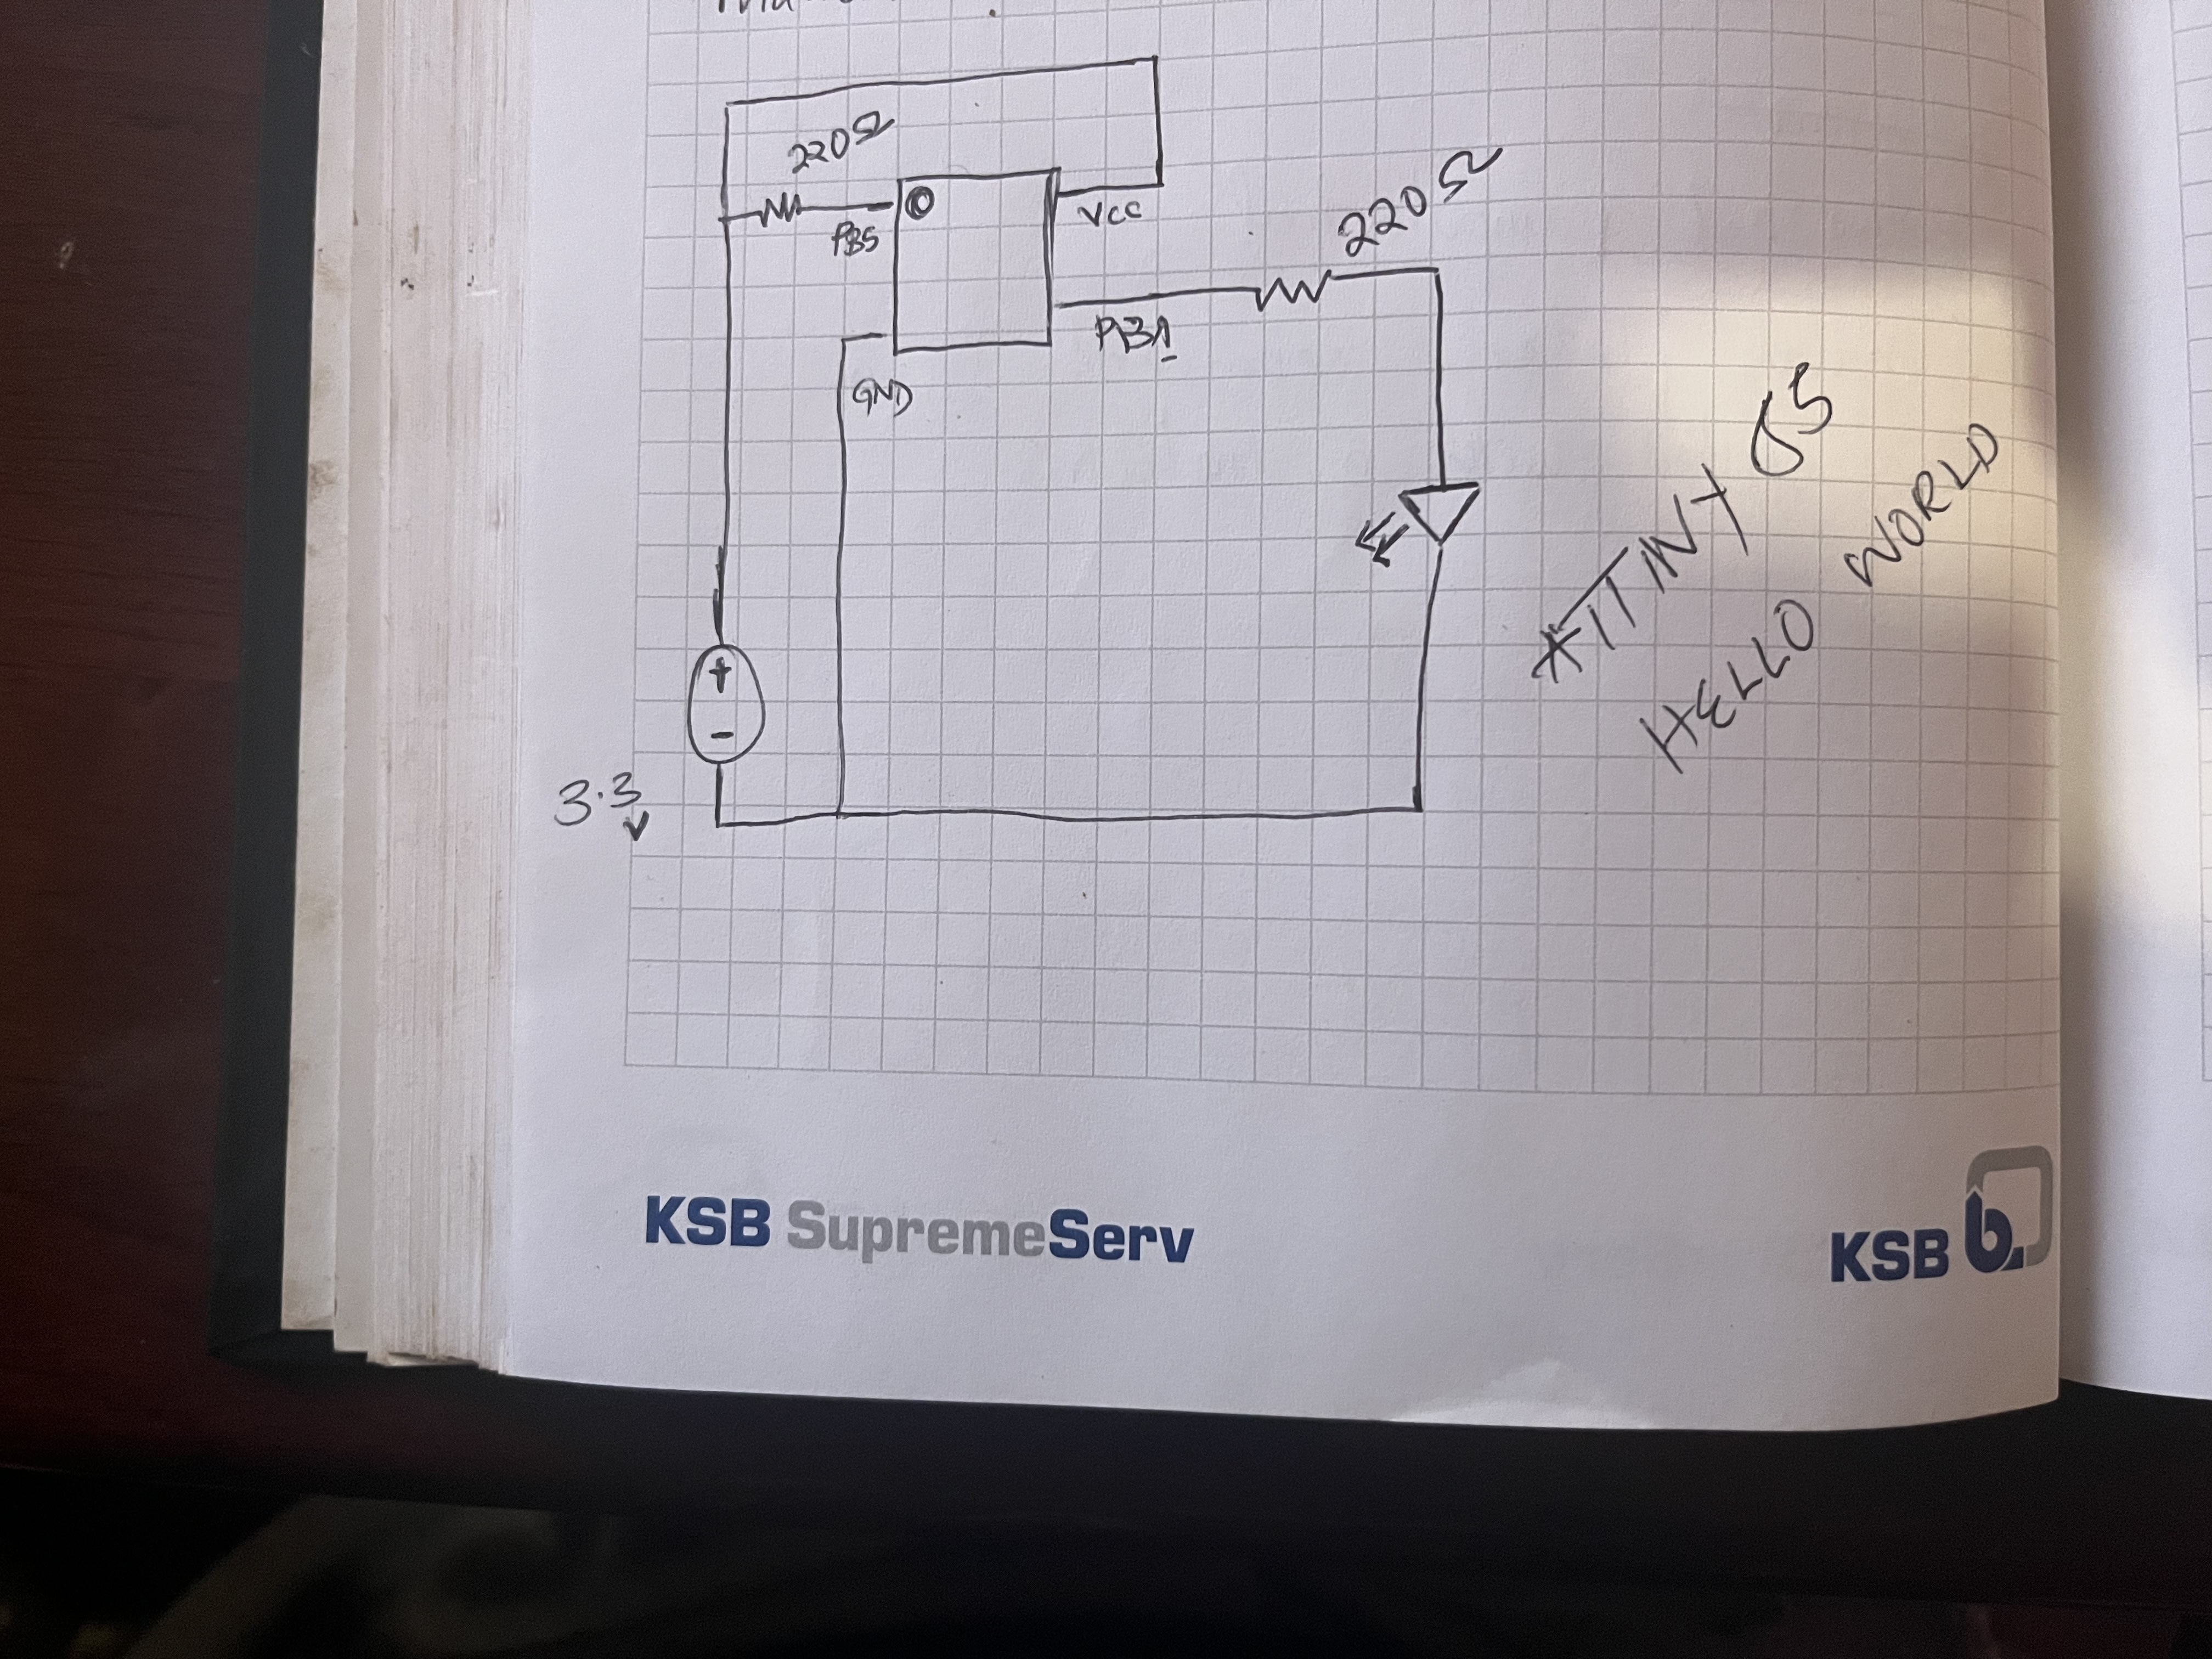 220Ω
PB5
VCC
220Ω
PB1
GND
ATTINY 85
HELLO WORLD
+
-
3.3
V
KSB SupremeServ
KSB b.